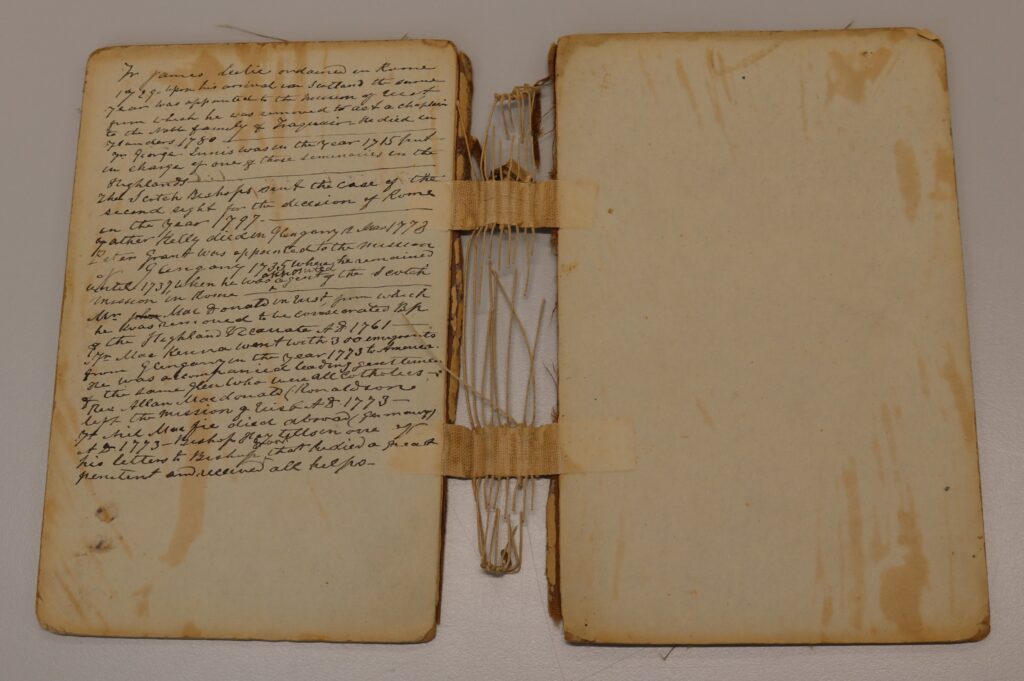 Fr James Leslie ordained in Rome
1729. Upon his arrival in Scotland the same
year was appointed to the mission of Uist
from which he was removed to act a chaplain
to the Noble family of Traquair. He died in
Flanders 1780
Mr George Innis was in the year 1715 first
in charge of one of those seminaries in the
Highlands
The Scotch Bishops sent the case of the
second sight for the decision of Rome
in the year 1797.
Father Kelly died in Glengarry Mar 1773
Peter Grant was appointed to the mission
of Glengarry 1735 where he remained
until 1737 when he was announced agent of the Scotch
mission in Rome
Mr John Mac Donald in Uist, from which
he was removed to be consecrated Bp
of the Highland AD 1761
Mr Mac Kenna went with 300 emigrants
from Glengarry in the year 1773 to America.
He was accompanied leading gentlemen
of the same Glen who were all Catholics
Rev Allan Macdonald (Ronaldson
left the mission of Uist AD 1773
Mr Neil Mac fie died abroad (Germany)
AD 1773 Bishop Hay tells in one of
his letters to Bishop that he died a great
penitent and received all helps